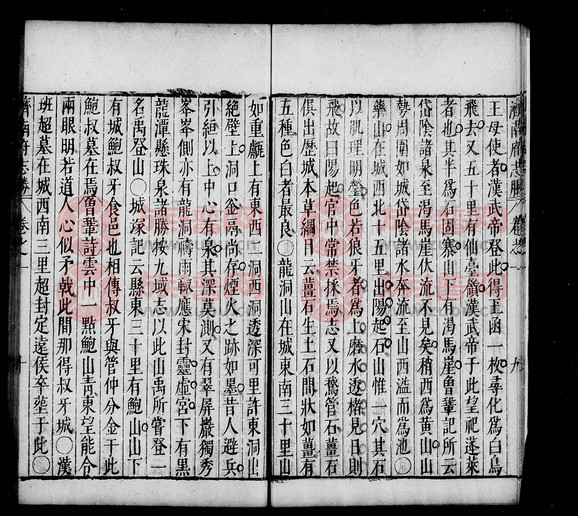 王母使者漢武帝登此得玉函一枚尋化爲白烏
飛去又五十里有仙臺嶺漢武帝于此望祀蓬萊
者也其半爲石固寨山有渴馬崖曾鞏記所云
岱陰諸泉至渴馬崖伏流不見矣稍西爲黃山山
勢周圍如城岱陰諸水奔流至山西滙而爲池○
藥山在城西北十五里出陽起石山惟一穴其石
以肌理明瑩色若狼牙者爲上磨水逆檐見日則
飛故曰陽起官中常禁採焉志又以鵞管石薑石
俱出歷城本草綱目云薑石生土石間狀如薑有
五種色白者最良○龍洞山在城東南三十里山
如重甗上有東西二洞西洞透深可里許東洞出
絶壁上洞口釜鬲尚存煙火之跡如墨昔人避兵
引絙以上中心有泉其深莫測又有翠屏巖獨秀
峯峯側亦有龍洞禱雨輒應宋封靈虛宮下有黑
龍潭懸珠泉諸勝按九域志以此山禹所嘗登一
名禹登山○城冢記云縣東三十里有鮑山山下
有城鮑叔牙食邑也相傳叔牙與管仲分金于此
鮑叔墓在焉曾鞏詩雲中一點鮑山青東望能令
兩眼明若道人心似矛戟此間那得叔牙城○漢
班超墓在城西南三里超封定遠侯卒塟于此○
濟南府志勝 卷之一 十